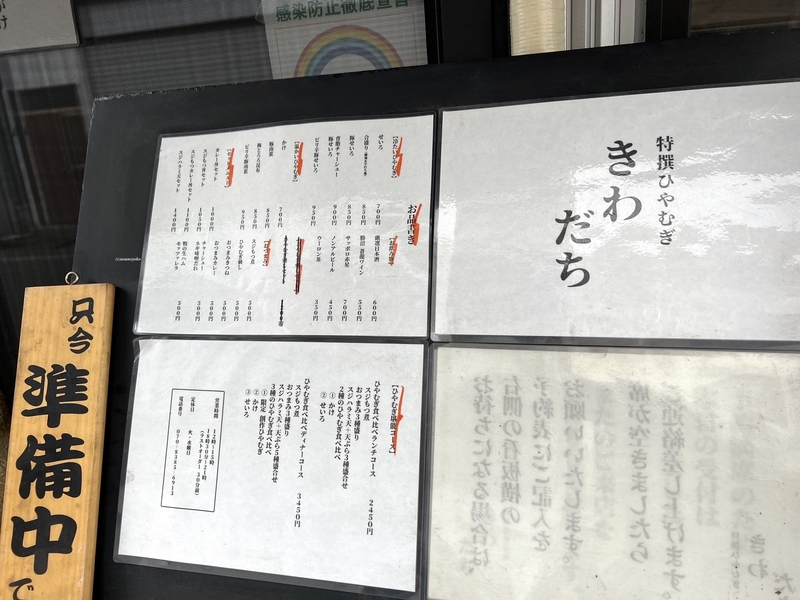 感染防止徹底宣言
特撰ひやむぎ
きわだち
お品書き
【冷たいひやむぎ】
せいろ 700円
合盛り 850円
豚せいろ 850円
背脂チャーシュー豚せいろ 900円
ピリ辛豚せいろ 950円
【温かいひやむぎ】
かけ 700円
豚南蛮 850円
梅とろろ昆布 850円
ピリ辛豚南蛮 950円
カレー丼セット 1000円
スジもつ丼セット 1050円
スジもつカレー丼セット 1100円
スジハラミ天セット 1400円
【お飲み物】
厳選日本酒 600円
勝沼 甚親ワイン 550円
サッポロ赤星 700円
ノンアルビール 450円
ウーロン茶 350円
スジもつ煮 500円
ひやむぎ刺し 500円
おつまみきつね 500円
おつまみカレー 500円
チャーシュー 500円
ネギ味噌だれ 500円
鴨の生ハム 500円
モッツァレラ 500円
【ひやむぎ堪能コース】
ひやむぎ食べ比べランチコース 2450円
スジもつ煮
おつまみ3種盛り
スジハラミ天+天ぷら3種盛合せ
2種のひやむぎ食べ比べ
①かけ
②せいろ
ひやむぎ食べ比べディナーコース 3450円
スジもつ煮
おつまみ3種盛り
スジハラミ天+天ぷら5種盛合せ
3種のひやむぎ食べ比べ
①限定 創作ひやむぎ
②かけ
③せいろ
営業時間 12時~15時
18時30分~21時
(ラストオーダー30分前)
定休日 火・水曜日
電話番号 070-8385-6913
只今
準備中
で